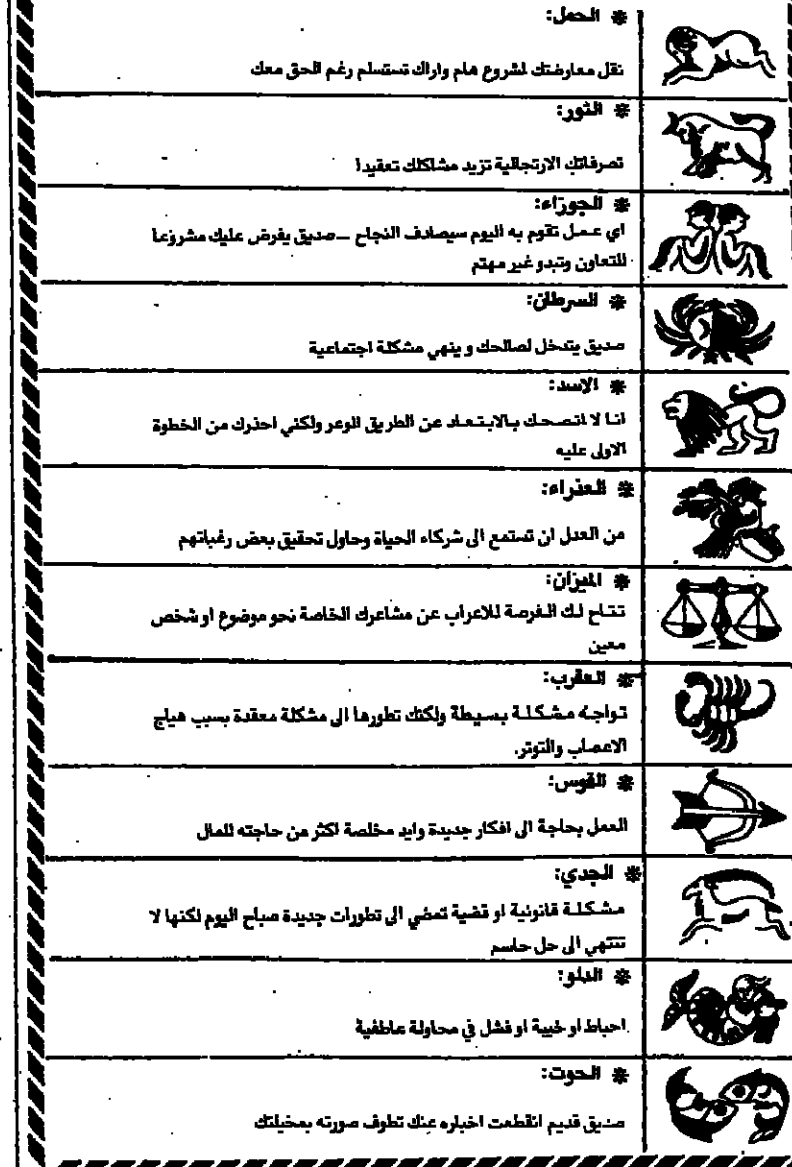 * الحمل:
تقل معارضتك لمشروع هام واراك تستسلم رغم الحق معك
* الثور:
تصرفاتك الارتجالية تزيد مشاكلك تعقيدا
* الجوزاء:
اي عمل تقوم به اليوم سيصادف النجاح ــ صديق يفرض عليك مشروعا
للتعاون وتبدو غير مهتم
* السرطان:
صديق يتدخل لصالحك وينهي مشكلة اجتماعية
* الاسد:
انا لا انصحك بالابتعاد عن الطريق الوعر ولكني احذرك من الخطوة
الاولى عليه
* العذراء:
من العدل ان تستمع الى شركاء الحياة وحاول تحقيق بعض رغباتهم
* الميزان:
تتاح لك الفرصة للاعراب عن مشاعرك الخاصة نحو موضوع او شخص
معين
* العقرب:
تواجه مشكلة بسيطة ولكنك تطورها الى مشكلة معقدة بسبب هياج
الاعصاب والتوتر.
* القوس:
العمل بحاجة الى افكار جديدة وايد مخلصة اكثر من حاجته للمال
* الجدي:
مشكلة قانونية او قضية تمضي الى تطورات جديدة صباح اليوم لكنها لا
تنتهي الى حل حاسم
* الدلو:
احباط او خيبة او فشل في محاولة عاطفية
* الحوت:
صديق قديم انقطعت اخباره عنك تطوف صورته بمخيلتك